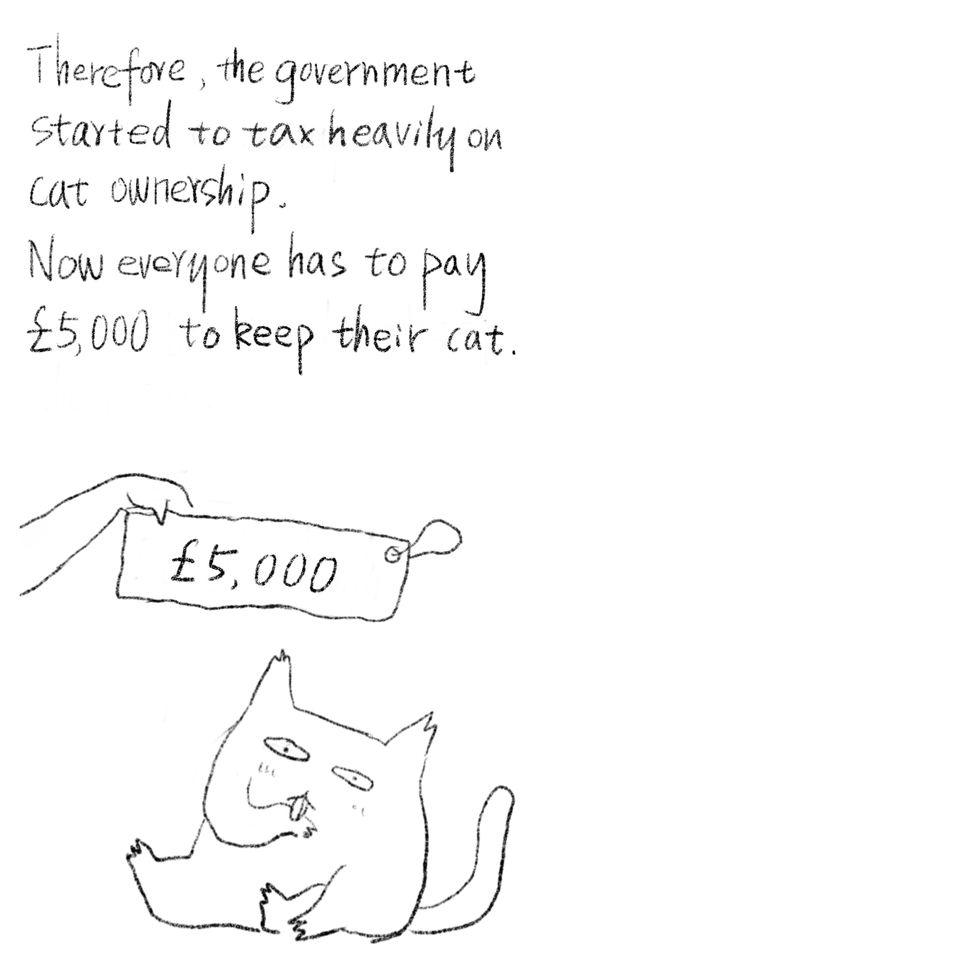 Therefore, the government
started to tax heavily on
cat ownership.
Now everyone has to pay
£5,000 to keep their cat.
£5,000